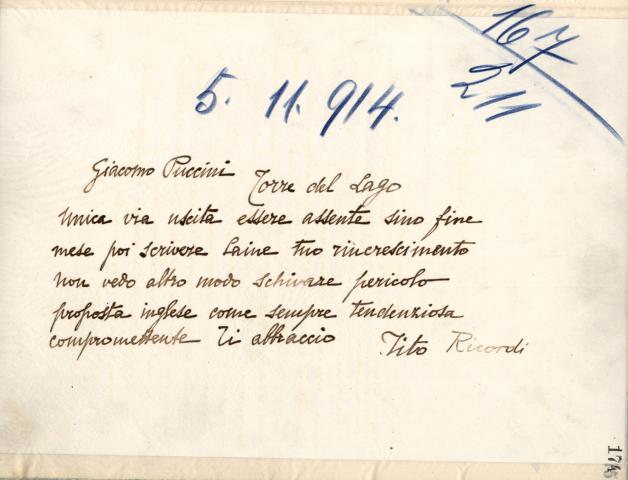 167
211
5. 11. 914.
Giacomo Puccini Torre del Lago
Unica via uscita essere assente sino fine
mese poi scrivere Caine tuo rincrescimento
non vedo altro modo schivare pericolo
proposta inglese come sempre tendenziosa
compromettente Ti abbraccio Tito Ricordi
174